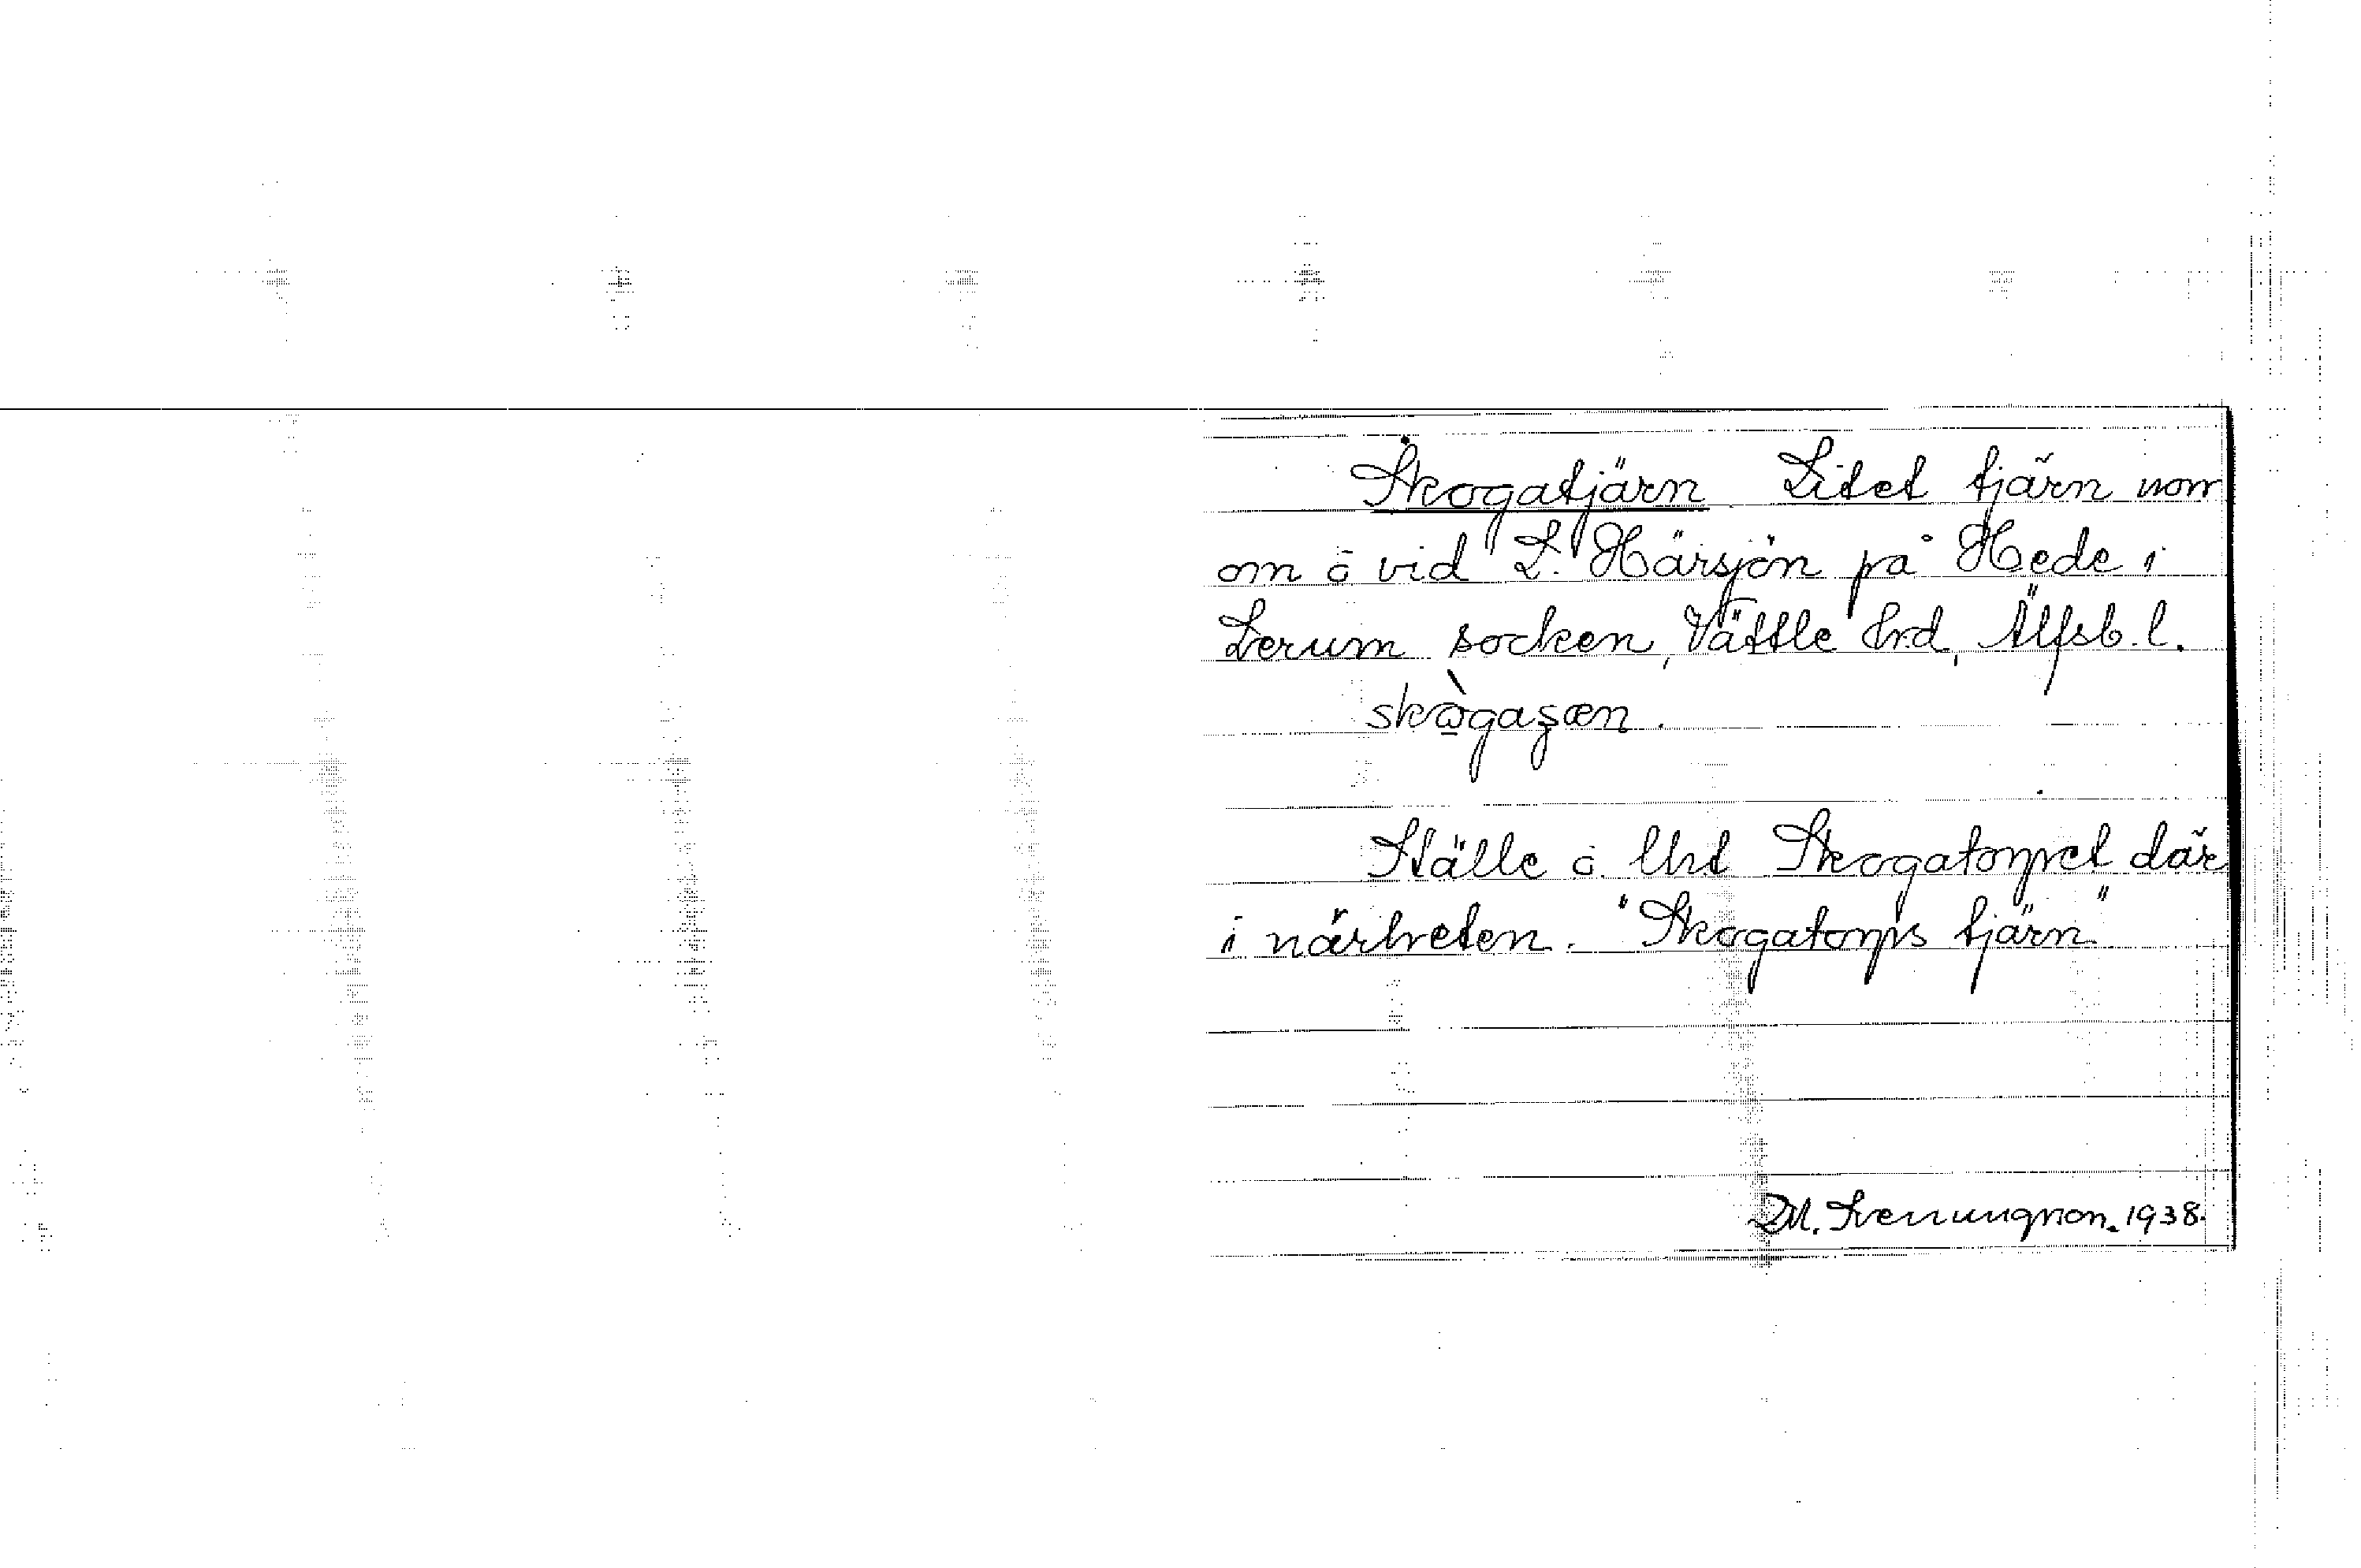 Skogatjärn Litet tjärn norr
om ö vid L. Härsjön på Hede i
Lerum socken, Vättle hrd, Älfsb. l.
skògaʂæn.
Ställe å Uhd Skogatorpet där
i närheten. "Skogatorps tjärn"
M. Svenungson. 1938.